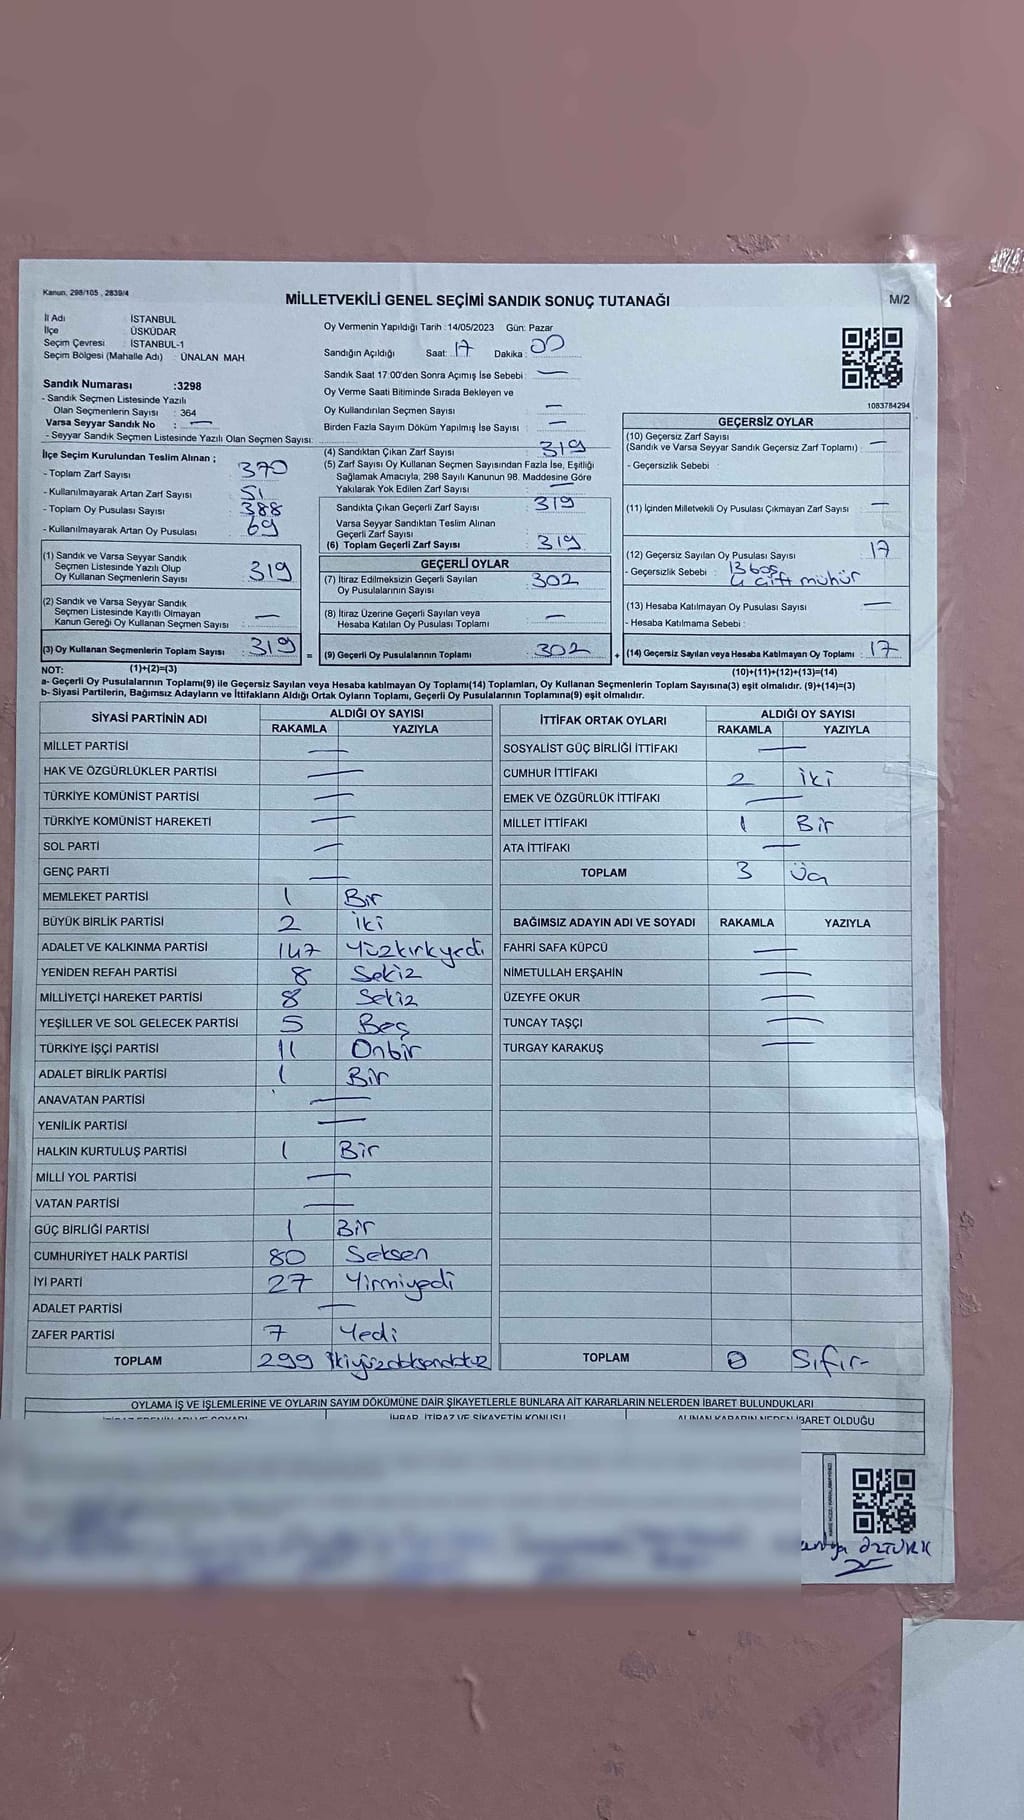 Kanun, 298/105 , 2839/4
MİLLETVEKİLİ GENEL SEÇİMİ SANDIK SONUÇ TUTANAĞI
M/2
İl Adı İSTANBUL
İlçe ÜSKÜDAR
Seçim Çevresi : İSTANBUL-1
Seçim Bölgesi (Mahalle Adı) : ÜNALAN MAH
Oy Vermenin Yapıldığı Tarih :14/05/2023 Gün: Pazar
Sandığın Açıldığı Saat: 17 Dakika : 00
Sandık Saat 17:00'den Sonra Açımış İse Sebebi : —
Oy Verme Saati Bitiminde Sırada Bekleyen ve
Oy Kullandırılan Seçmen Sayısı : —
Birden Fazla Sayım Döküm Yapılmış İse Sayısı : —
1083784294
Sandık Numarası :3298
- Sandık Seçmen Listesinde Yazılı
Olan Seçmenlerin Sayısı : 364
Varsa Seyyar Sandık No : —
- Seyyar Sandık Seçmen Listesinde Yazılı Olan Seçmen Sayısı:
İlçe Seçim Kurulundan Teslim Alınan ;
- Toplam Zarf Sayısı 370
- Kullanılmayarak Artan Zarf Sayısı 51
- Toplam Oy Pusulası Sayısı 388
- Kullanılmayarak Artan Oy Pusulası 69
(1) Sandık ve Varsa Seyyar Sandık
Seçmen Listesinde Yazılı Olup
Oy Kullanan Seçmenlerin Sayısı : 319
(2) Sandık ve Varsa Seyyar Sandık
Seçmen Listesinde Kayıtlı Olmayan
Kanun Gereği Oy Kullanan Seçmen Sayısı : —
(3) Oy Kullanan Seçmenlerin Toplam Sayısı : 319 =
(4) Sandıktan Çıkan Zarf Sayısı : 319
(5) Zarf Sayısı Oy Kullanan Seçmen Sayısından Fazla İse, Eşitliği
Sağlamak Amacıyla, 298 Sayılı Kanunun 98. Maddesine Göre
Yakılarak Yok Edilen Zarf Sayısı : —
Sandıkta Çıkan Geçerli Zarf Sayısı : 319
Varsa Seyyar Sandıktan Teslim Alınan
Geçerli Zarf Sayısı
(6) Toplam Geçerli Zarf Sayısı : 319
GEÇERLİ OYLAR
(7) İtiraz Edilmeksizin Geçerli Sayılan
Oy Pusulalarının Sayısı : 302
(8) İtiraz Üzerine Geçerli Sayılan veya
Hesaba Katılan Oy Pusulası Toplamı : —
(9) Geçerli Oy Pusulalarının Toplamı : 302 +
GEÇERSİZ OYLAR
(10) Geçersiz Zarf Sayısı
(Sandık ve Varsa Seyyar Sandık Geçersiz Zarf Toplamı) : —
- Geçersizlik Sebebi :
(11) İçinden Milletvekili Oy Pusulası Çıkmayan Zarf Sayısı : —
(12) Geçersiz Sayılan Oy Pusulası Sayısı : 17
- Geçersizlik Sebebi : 13 boş
4 çift mühür
(13) Hesaba Katılmayan Oy Pusulası Sayısı : —
- Hesaba Katılmama Sebebi :
(14) Geçersiz Sayılan veya Hesaba Katılmayan Oy Toplamı : 17
NOT: (1)+(2)=(3) (10)+(11)+(12)+(13)=(14)
a- Geçerli Oy Pusulalarının Toplamı(9) ile Geçersiz Sayılan veya Hesaba katılmayan Oy Toplamı(14) Toplamları, Oy Kullanan Seçmenlerin Toplam Sayısına(3) eşit olmalıdır. (9)+(14)=(3)
b- Siyasi Partilerin, Bağımsız Adayların ve İttifakların Aldığı Ortak Oyların Toplamı, Geçerli Oy Pusulalarının Toplamına(9) eşit olmalıdır.
SİYASİ PARTİNİN ADI ALDIĞI OY SAYISI
RAKAMLA YAZIYLA
MİLLET PARTİSİ —
HAK VE ÖZGÜRLÜKLER PARTİSİ —
TÜRKİYE KOMÜNİST PARTİSİ —
TÜRKİYE KOMÜNİST HAREKETİ —
SOL PARTİ —
GENÇ PARTİ —
MEMLEKET PARTİSİ 1 Bir
BÜYÜK BİRLİK PARTİSİ 2 İki
ADALET VE KALKINMA PARTİSİ 147 Yüzkırkyedi
YENİDEN REFAH PARTİSİ 8 Sekiz
MİLLİYETÇİ HAREKET PARTİSİ 8 Sekiz
YEŞİLLER VE SOL GELECEK PARTİSİ 5 Beş
TÜRKİYE İŞÇİ PARTİSİ 11 Onbir
ADALET BİRLİK PARTİSİ 1 Bir
ANAVATAN PARTİSİ —
YENİLİK PARTİSİ —
HALKIN KURTULUŞ PARTİSİ 1 Bir
MİLLİ YOL PARTİSİ —
VATAN PARTİSİ —
GÜÇ BİRLİĞİ PARTİSİ 1 Bir
CUMHURİYET HALK PARTİSİ 80 Seksen
İYİ PARTİ 27 Yirmiyedi
ADALET PARTİSİ —
ZAFER PARTİSİ 7 Yedi
TOPLAM 299 İkiyüzdoksandokuz
İTTİFAK ORTAK OYLARI ALDIĞI OY SAYISI
RAKAMLA YAZIYLA
SOSYALİST GÜÇ BİRLİĞİ İTTİFAKI —
CUMHUR İTTİFAKI 2 İki
EMEK VE ÖZGÜRLÜK İTTİFAKI —
MİLLET İTTİFAKI 1 Bir
ATA İTTİFAKI —
TOPLAM 3 Üç
BAĞIMSIZ ADAYIN ADI VE SOYADI RAKAMLA YAZIYLA
FAHRİ SAFA KÜPCÜ —
NİMETULLAH ERŞAHİN —
ÜZEYFE OKUR —
TUNCAY TAŞÇI —
TURGAY KARAKUŞ —
TOPLAM 0 Sıfır
OYLAMA İŞ VE İŞLEMLERİNE VE OYLARIN SAYIM DÖKÜMÜNE DAİR ŞİKAYETLERLE BUNLARA AİT KARARLARIN NELERDEN İBARET BULUNDUKLARI
İHBAR, İTİRAZ VE ŞİKAYETİN KONUSU ALINAN KARARIN NEDEN İBARET OLDUĞU
ÖZTÜRK